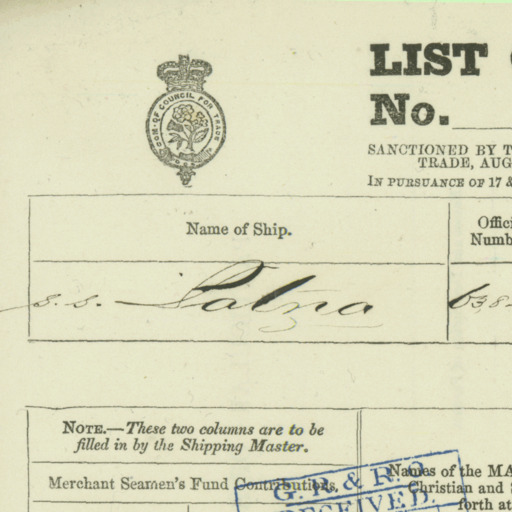 LIST
No.
COM. OF COUNCIL FOR TRADE
SANCTIONED BY T
TRADE, AUG
IN PURSUANCE OF 17 &
Name of Ship.
Offici
Numb
s.s. Patna
638
NOTE.—These two columns are to be
filled in by the Shipping Master.
Merchant Seamen's Fund Contributions.
Names of the MA
Christian and
forth at
G. R. & R. O
RECEIVED.